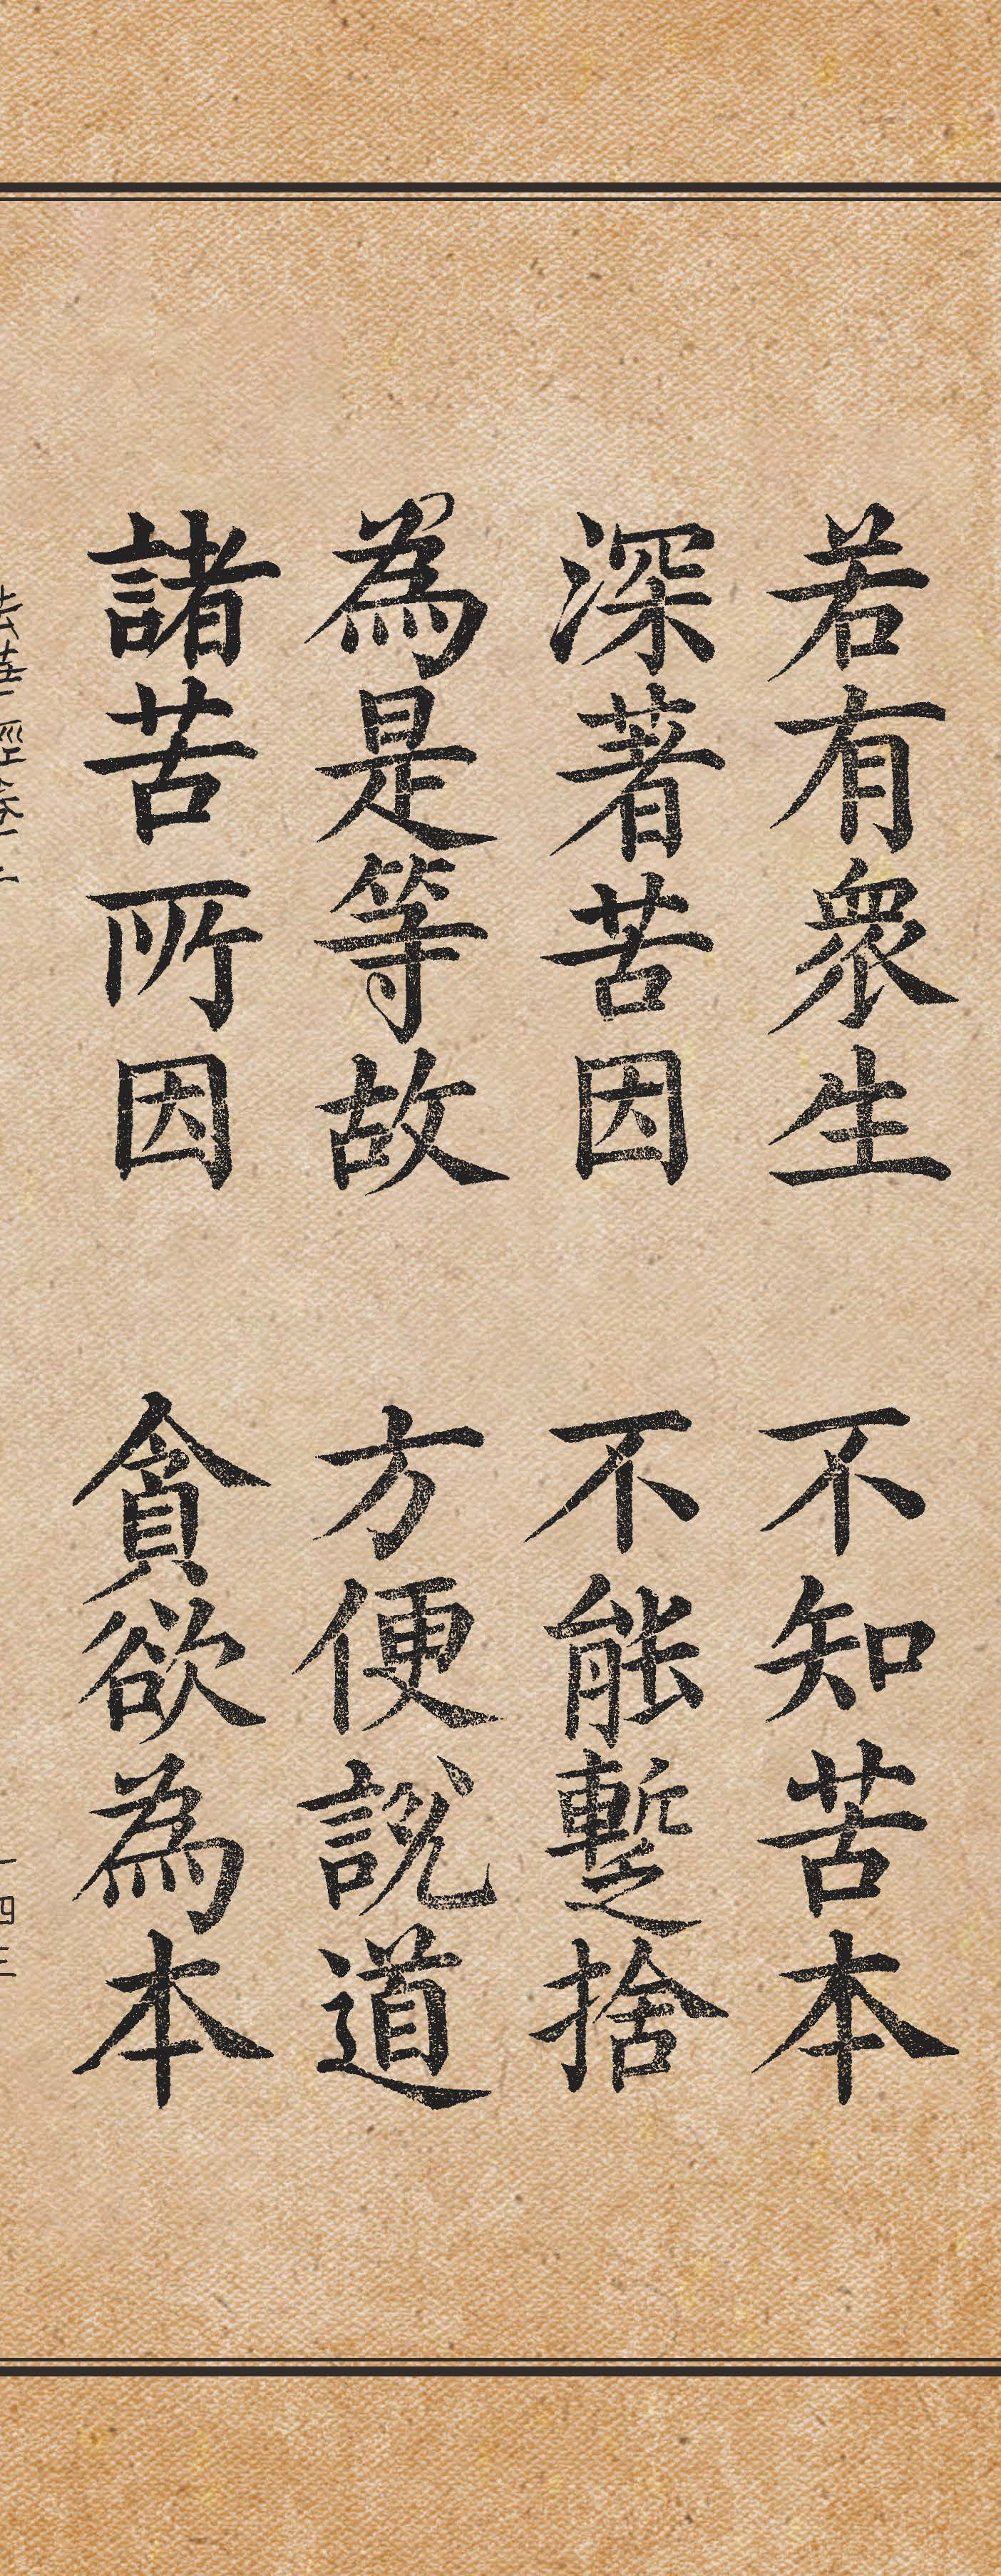 若有衆生 不知苦本
深著苦因 不能暫捨
為是等故 方便說道
諸苦所因 貪欲為本